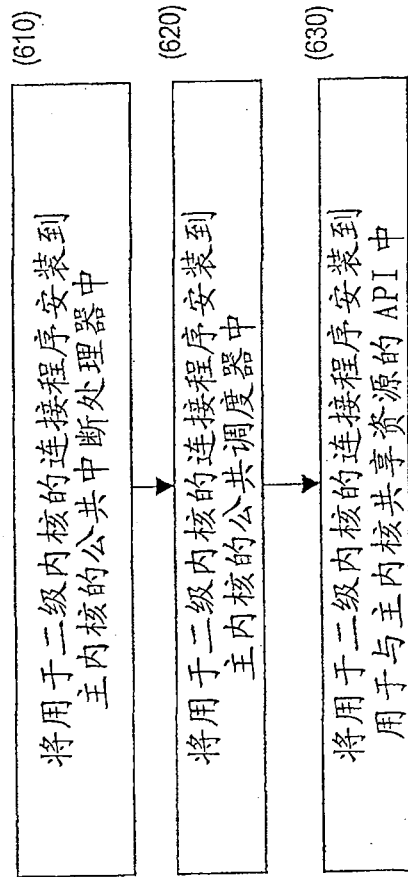 (610)
将用于二级内核的连接程序安装到
主内核的公共中断处理器中
(620)
将用于二级内核的连接程序安装到
主内核的公共调度器中
(630)
将用于二级内核的连接程序安装到
用于与主内核共享资源的 API 中